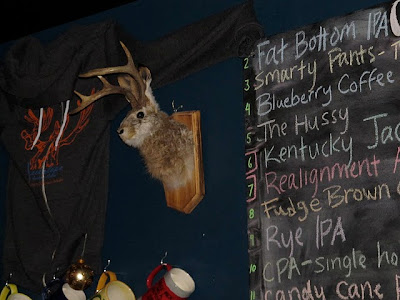 2 Fat Bottom IPA
Smarty Pants-
3 Blueberry Coffee
4 The Hussy
5 Kentucky Jac
6 Realignment A
7 Fudge Brown
8 Rye IPA
CPA-Single ho
10 candy cane P